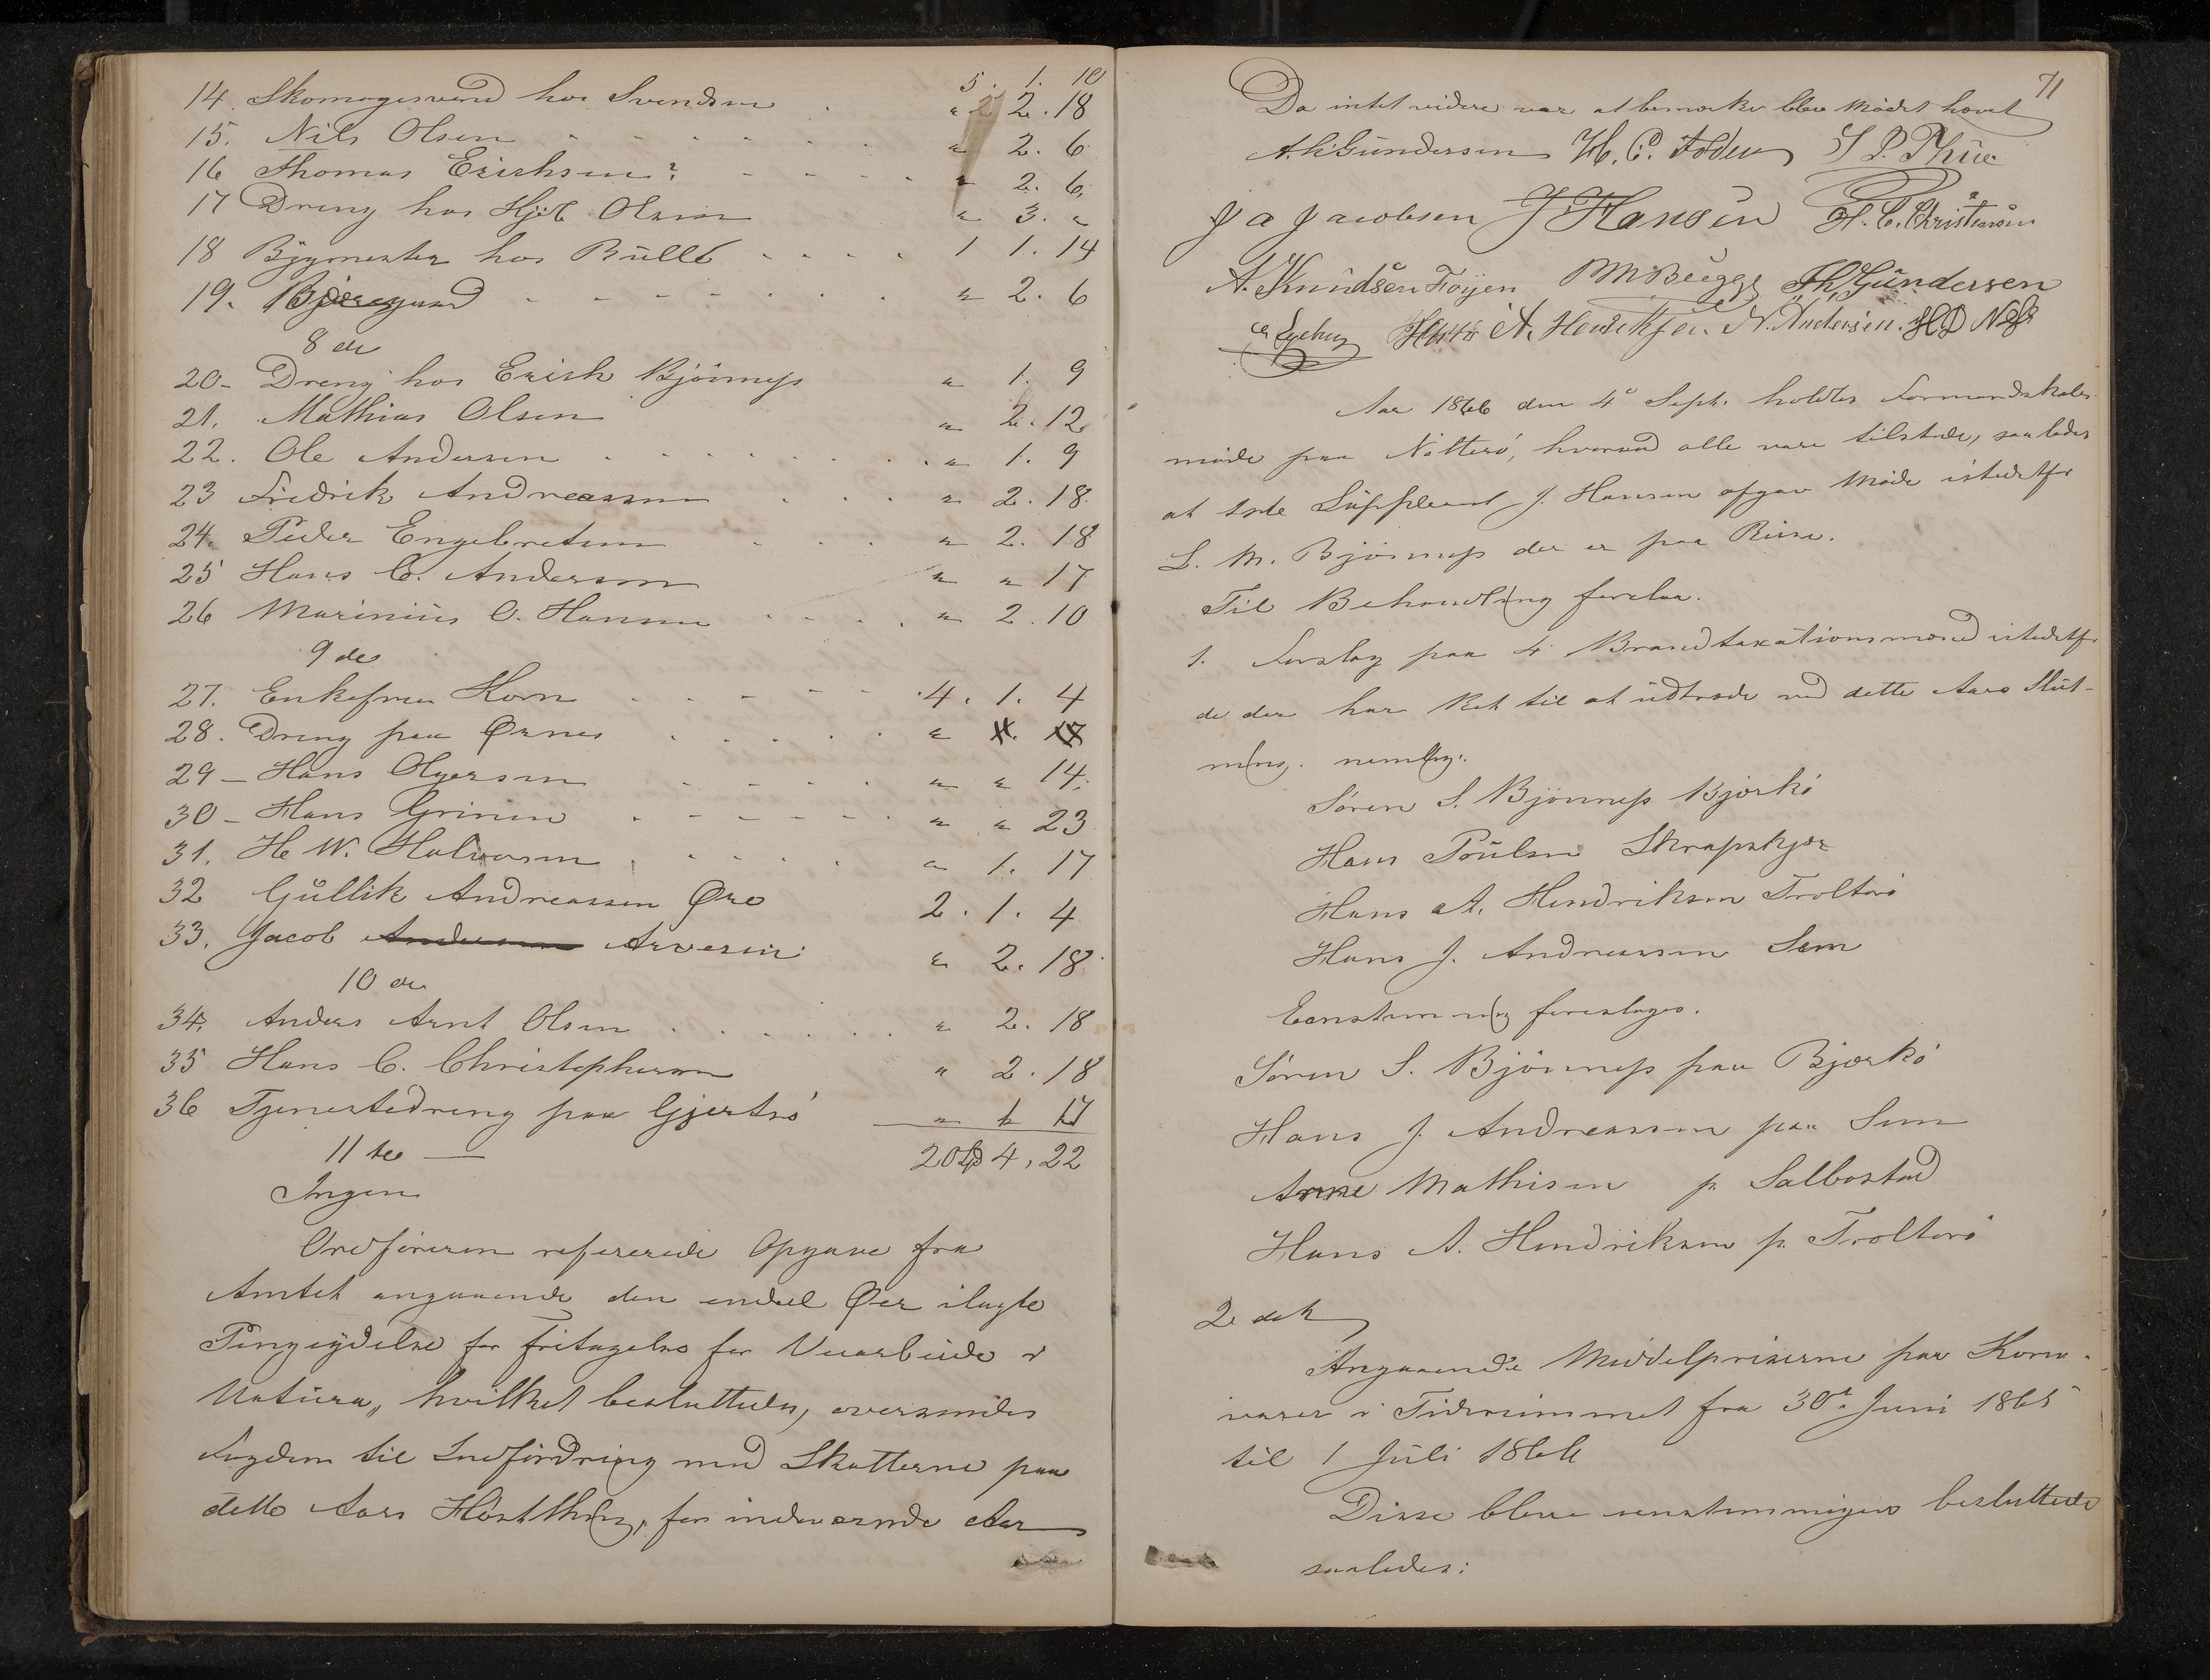 5. 1. 10
14. Skomagersvend hos Svendsen . " 2. 18
15. Nils Olsen - - - - - " 2. 6
16 Thomas Erichsen? - - - - " 2. 6
17 Dreng hos Hjel Olsen " 3. "
18 Bygmester hos Bülle - - - - 1 1. 14
19. - - - - - " 2. 6
8de
20- Dreng hos Erich Bjönness " 1. 9
21. Mathias Olsen " 2. 12
22. Ole Andersen . . . . . " 1. 9
23 Fredrik Andreassen . . . " 2. 18
24. Peder Engebretsen . . . " 2. 18
25 Hans C. Anderson " " 17
26 Marinius O. Hansen . . . . " 2. 10
9de
27. Enkefru Korn - - - - 4. 1. 4
28. Dreng paa Ørsnes . . . . . "
29- Hans Olgersen - - - - " " 14.
30- Hans Grinen - - - - - " " 23
31. H W. Halvorsen . . . . . " 1. 17
32 Gullik Andreassen Øre 2. 1. 4
33. Jacob Andersen Arvesen " 2. 18
10de
34. Anders Arnt Olsen . . . . . . " 2. 18
35 Hans C. Christophersen " 2. 18
36 Tjenestedreng paa Gjertsö " 1 17
11te — 20 4. 22
Ingen
Ordföreren refererede Opgave fra
Amtet angaaende den endeel Øer ilagte
Pengeydelse for Fritagelse for Veiarbeide i
Natura, hvilket besluttedes, oversendes
Fogden til Indfordring med Skatterne paa
dette Aars Höstthing, for indeværende Aar
71
Da intet videre var at bemærke blev Mödet hævet
A. H. Gundersen H. C. Foden
J a Jacobsen J Hansen H. C. Christensen
A. Knudsen Foÿen M Brügge Th. Gundersen
Hans A. Hendriksen. N. Andersen. H D Næss
Aar 1866 den 4de Sept. holdtes Formandskabs-
möde paa Nötterö, hvorved alle vare tilstede, saaledes
at 1ste Suppleant J. Hansen afgav Möde istedetfor
L. M. Bjönness der er paa Reise.
Til Behandling forelaa.
1. Forslag paa 4 Brandtaxationsmænd istedetfor
de der har Ret til at üdtræde ved dette Aars Slut-
ning. nemlig:
Sören S. Bjönness Bjerkö
Hans Poulsen Skrapskjær
Hans A. Hendriksen Troltvö
Hans J. Andreassen Sem
Eenstemmig foreslages.
Sören S. Bjönness paa Bjerkö
Hans J. Andreassen paa Sem
Arne Mathisen p. Salbostad
Hans A. Hendriksen p. Troltvö
2det
Angaaende Middelpriserne paa Korn-
varer i Tidsrummet fra 30te Juni 1865
til 1 Juli 1866
Disse bleve eenstemmigen besluttede
saaledes: